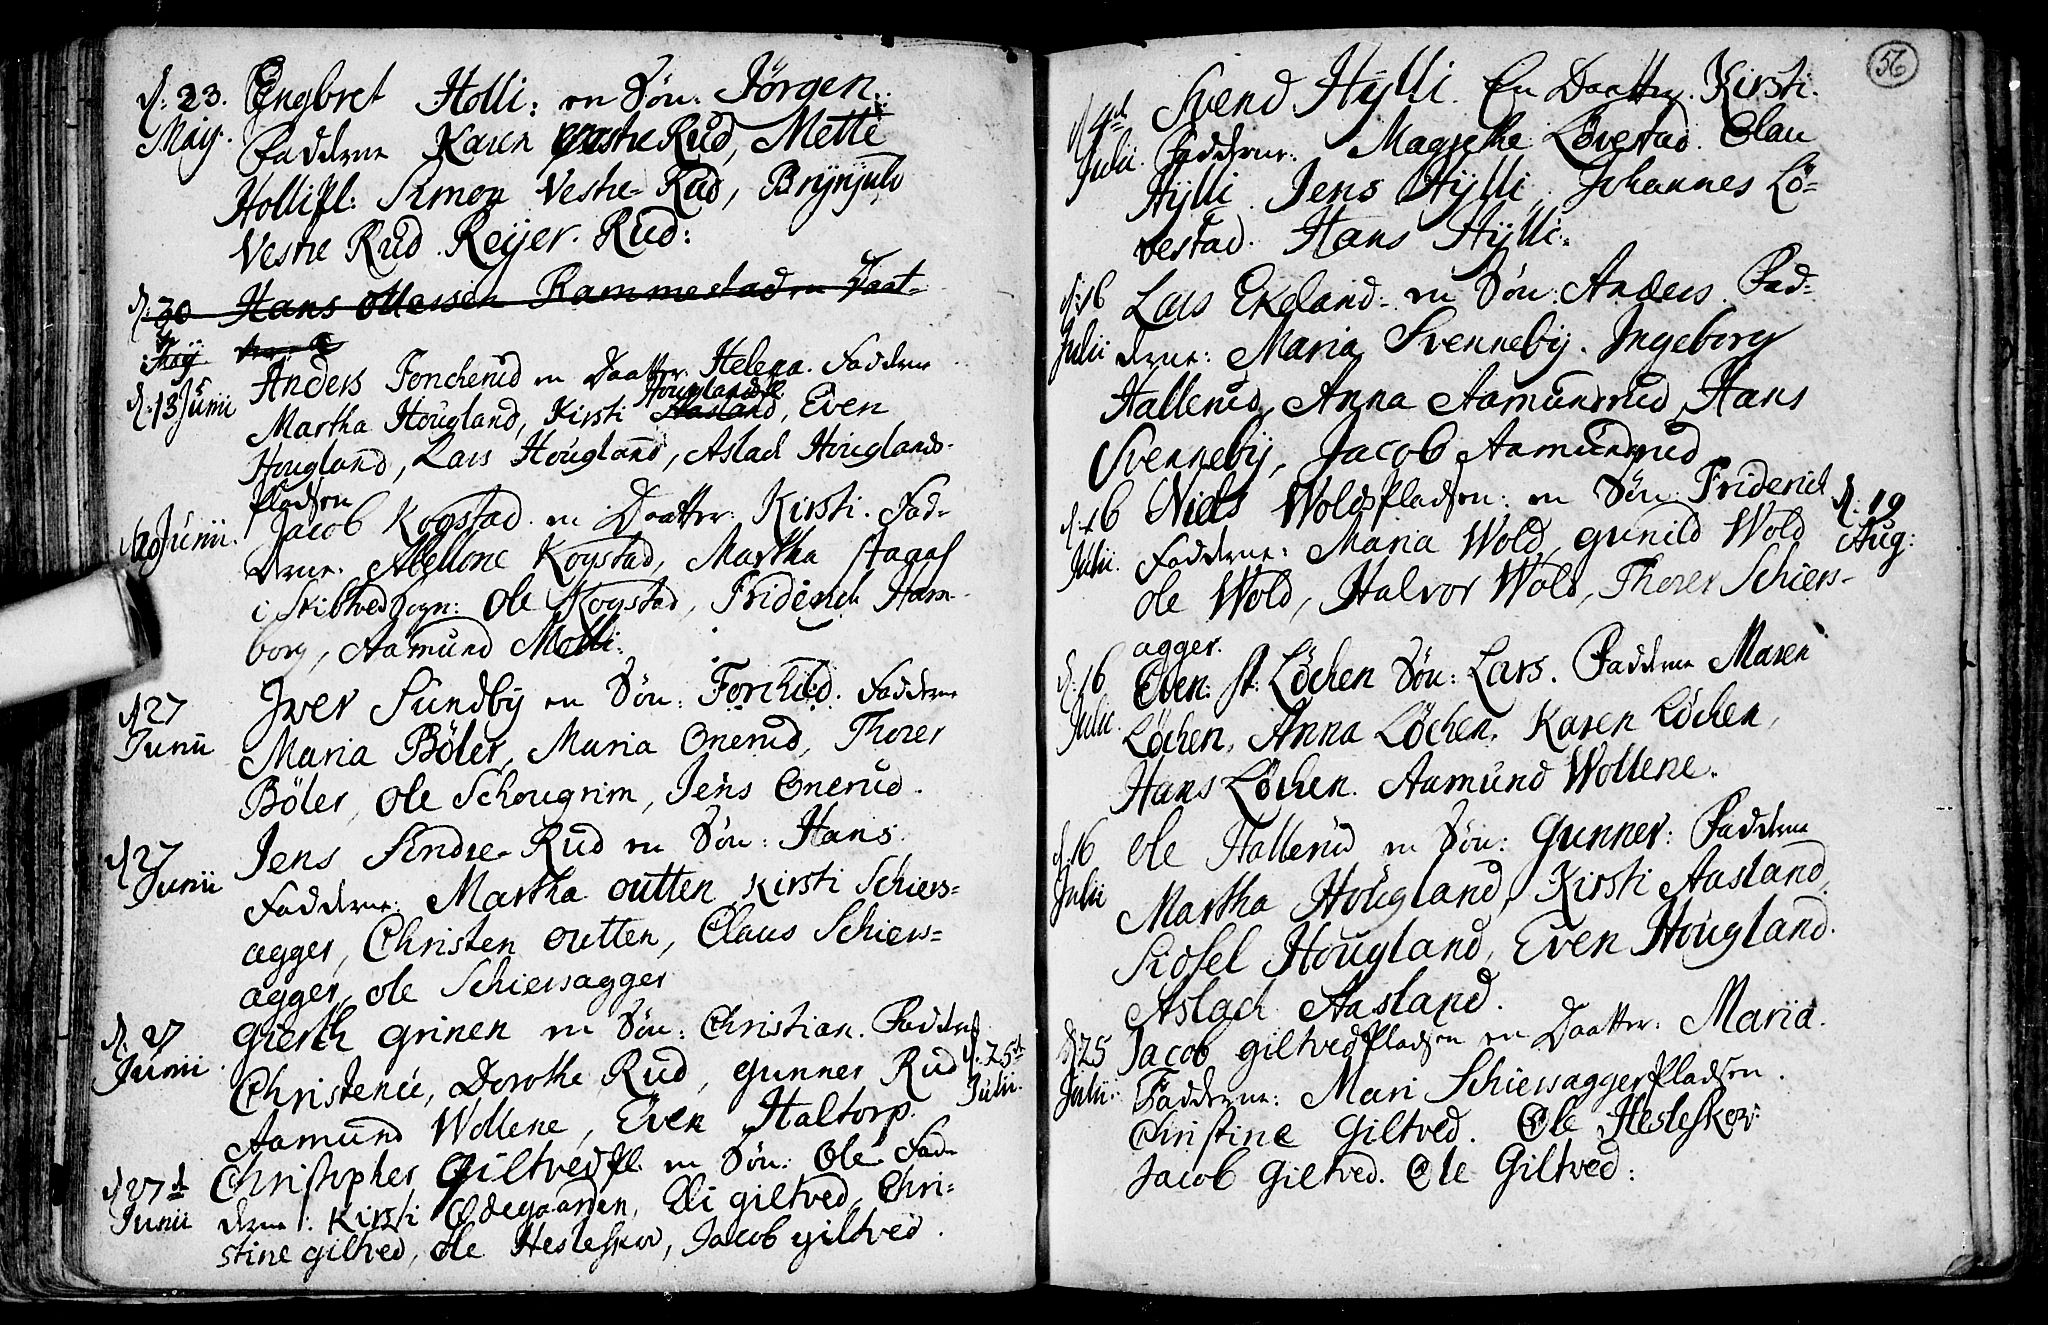 d: 23. Engebret Holli: en Søn: Jørgen.
May. Fadderne Karen Vestre Rud, Mette
Holli Pl: Simon Vestre Rud, Brynjulv
Vestre Rud. Reijer. Rud:
d: 30 Hans Rammestad en Daat-
Maij
Anders Foncherud en Daatter. Helena. Fadderne
d. 13 Junii Houglandspl.
Martha Hougland, Kirsti Aasland, Even
Hougland, Lars Hougland, Aslach Houglands-
Pladsen
20 Junii. Jacob Kogstad en Daatter: Kirsti. Fad-
derne. Abellone Kogstad, Martha
i Skibtved Sogn: Ole Kogstad, Friderich Ham-
borg, Aamund Molli:
d 27 Iver Sundby en Søn: Torchild. Fadderne
Junii Maria Bøler, Maria Onerud, Thorer
Bøler, Ole Schougrim, Jens Onerud.
d 27 Jens Søndre Rud en Søn: Hans.
Junii Fadderne: Martha Outten, Kirsti Schiers-
agger, Christen Outten, Claus Schiers-
agger, Ole Schiersagger
d. 27 Gierth Grinen en Søn: Christian. Fadderne
Junii. Christence, Dorothe Rud, Gunner Rud
d. 25 Julii.
Aamund Wollene, Even Haltorp.
d 27 Christopher Giltved Pl. en Søn: Ole. Fad-
Junii derne: Kirsti Ødegaarden, Eli Giltved, Chri-
stine Giltved, Ole Hesleskov, Jacob Giltved.
56
d 4 Svend Hÿlli. En Daatter. Kirsti.
Julii. Fadderne. Magrethe Løvestad. Olau
Hÿlli. Jens Hÿlli, Johannes Lø-
vestad. Hans Hÿlli.
d: 16 Lars Ekeland. en Søn: Anders. Fad-
Julii derne: Maria Svennebÿ. Ingeborg
Hallerud, Anna Aamundrud, Hans
Svennebÿ, Jacob Aamundrud
d. 16 Niels WoldsPladsen: en Søn: Friderich
d: 19 Aug:
Julii. Fadderne: Maria Wold, Gunild Wold
Ole Wold, Halvor Wold, Thorer Schiers-
agger.
d. 16 Even. Løchen Søn: Lars. Fadderne Maren
Julii. Løchen, Anna Løchen. Karen Løchen,
Hans Løchen. Aamund Wollene.
d. 16 Ole Hallerud en Søn: Gunner: Fadderne
Julii Martha Hougland, Kirsti Aasland,
Sidsel Hougland, Even Hougland.
Aslach Aasland.
d 25 Jacob Giltved Pladsen en Daatter: Maria.
Julii. Fadderne: Mari Schiersagger Pladsen.
Christine Giltved. Ole Hesleskov
Jacob Giltved. Ole Giltved: